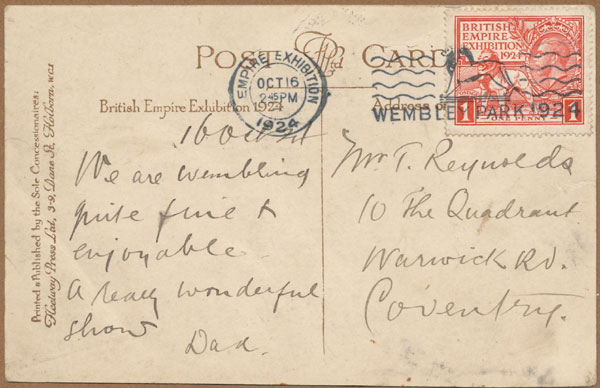 POST CARD
BRITISH
EMPIRE
EXHIBITION
1924
1 1
ONE PENNY
EMPIRE EXHIBITION
OCT 16
2 45 PM
1924
WEMBLEY PARK 1924
British Empire Exhibition 1924
Address o
Printed & Published by the Sole Concessionaires:
Fleetway Press Ltd, 3-9, Dane St, Holborn, W.C.1
16 Oct 24
We are wembling
quite fine &
enjoyable
A really wonderful
show
Dad.
Mr T. Reynolds
10 The Quadrant
Warwick Rd.
Coventry.